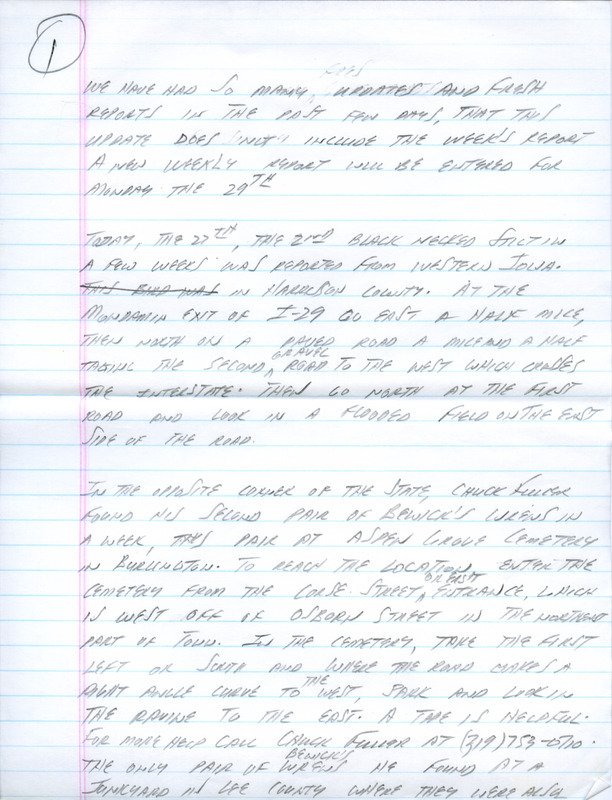 1
WE HAVE HAD SO MANY, UPDATES AND FRESH
REPORTS IN THE PAST FEW DAYS, THAT THIS
UPDATE DOES NOT INCLUDE THE WEEK'S REPORT
A NEW WEEKLY REPORT WILL BE ENTERED FOR
MONDAY THE 29TH
TODAY, THE 27TH, THE 2ND BLACK NECKED STILT IN
A FEW WEEKS WAS REPORTED FROM WESTERN IOWA.
THIS BIRD WAS IN HARRISON COUNTY. AT THE
MONDAMIN EXIT OF I-29 GO EAST A HALF MILE,
THEN NORTH ON A PAVED ROAD A MILE AND A HALF
TAKING THE SECOND GRAVEL ROAD TO THE WEST WHICH CROSSES
THE INTERSTATE. THEN GO NORTH AT THE FIRST
ROAD AND LOOK IN A FLOODED FIELD ON THE EAST
SIDE OF THE ROAD.
IN THE OPPOSITE CORNER OF THE STATE, CHUCK FULLER
FOUND HIS SECOND PAIR OF BEWICK'S WRENS IN
A WEEK, THIS PAIR AT ASPEN GROVE CEMETERY
IN BURLINGTON. TO REACH THE LOCATION, ENTER THE
CEMETERY FROM THE CORSE STREET OR EAST ENTRANCE, WHICH
IS WEST OFF OF OSBORN STREET IN THE NORTHERN
PART OF TOWN. IN THE CEMETERY, TAKE THE FIRST
LEFT OR SOUTH AND WHERE THE ROAD MAKES A
RIGHT ANGLE CURVE TO THE WEST, PARK AND LOOK IN
THE RAVINE TO THE EAST. A TAPE IS HELPFUL.
FOR MORE HELP CALL CHUCK FULLER AT (319) 753-
THE ONLY PAIR OF BEWICK'S WRENS HE FOUND AT A
JUNKYARD IN LEE COUNTY WHERE THEY WERE ALSO